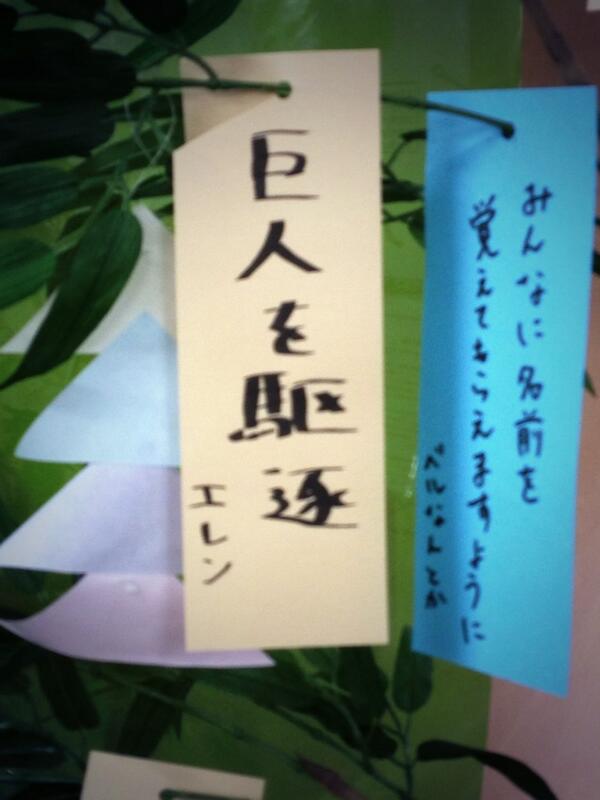 みんなに名前を
覚えてもらえますように
ベルなんとか
巨人を駆逐
エレン